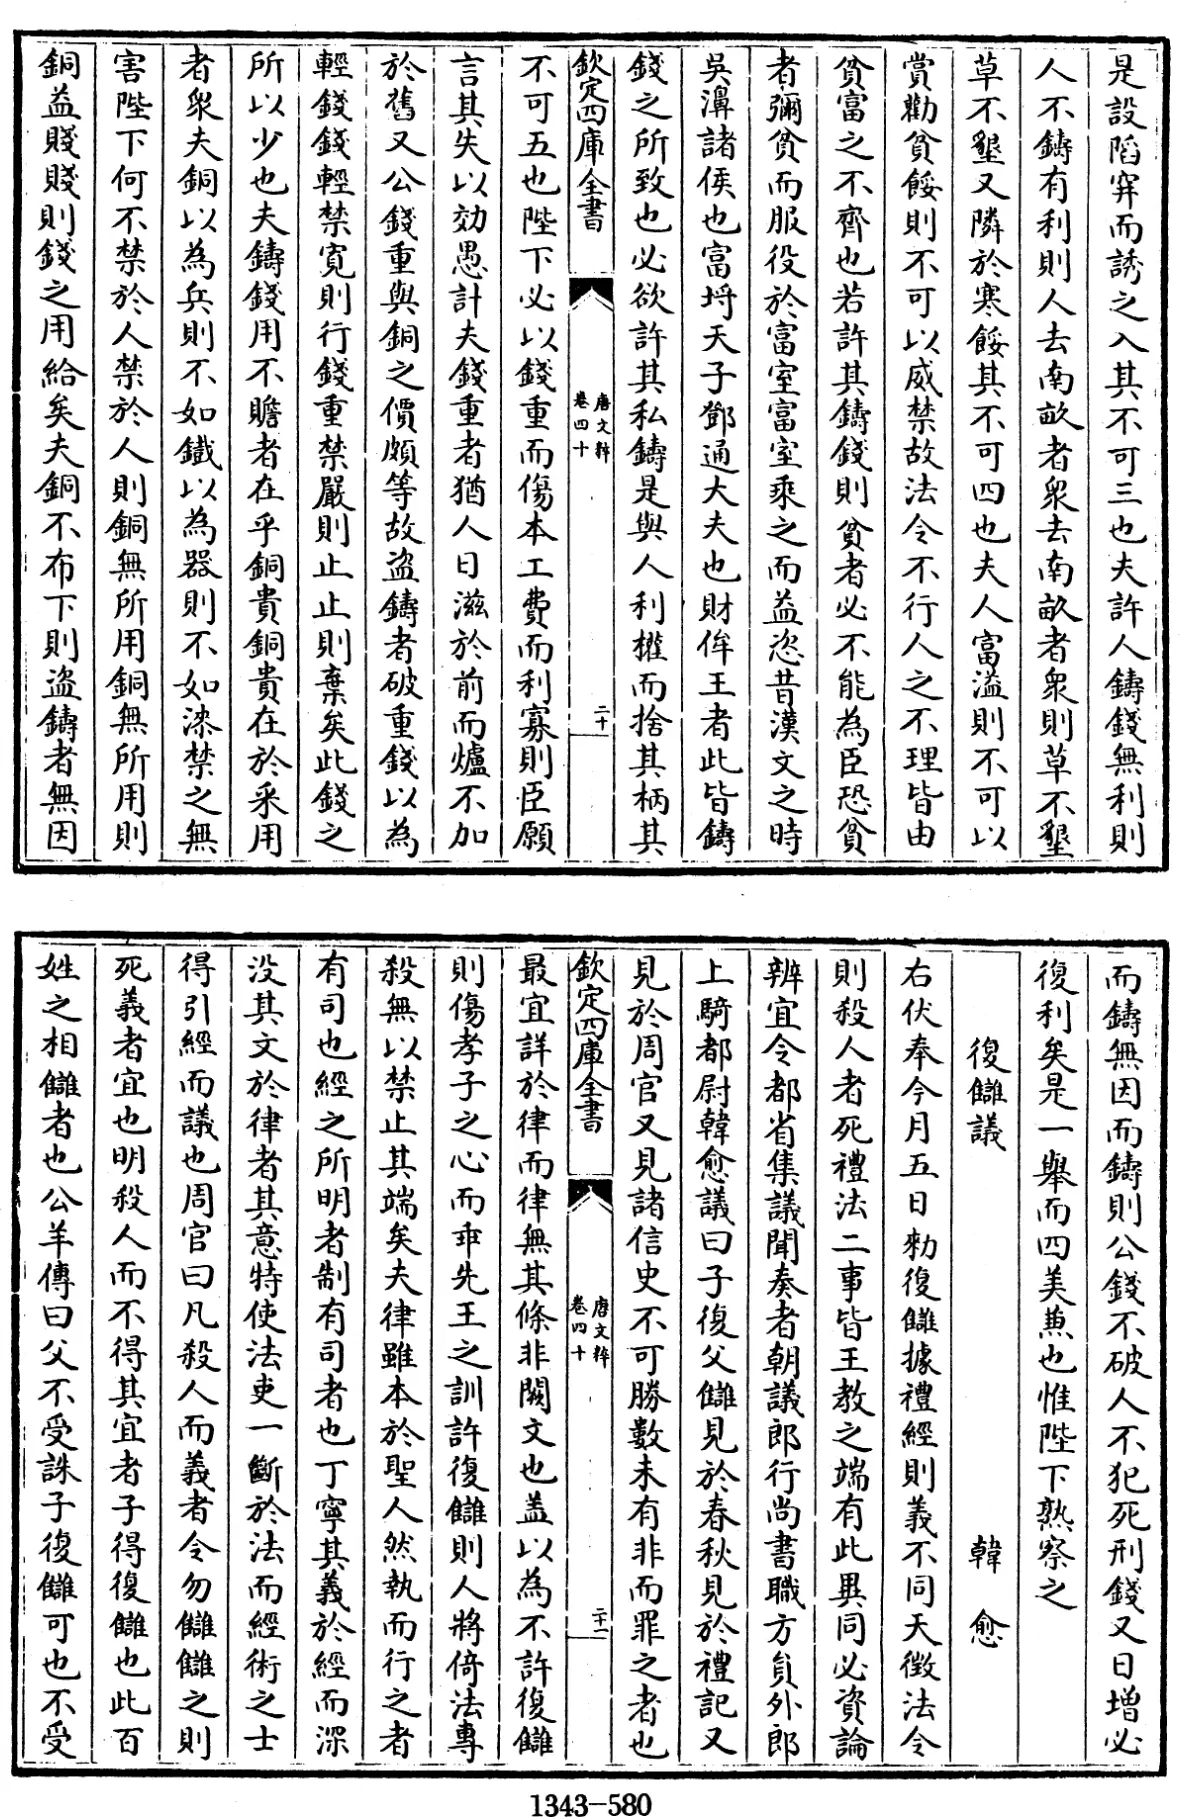 是設陷穽而誘之入其不可三也夫許人鑄錢無利則
人不鑄有利則人去南畝者衆去南畝者衆則草不墾
草不墾又隣於寒餒其不可四也夫人富溢則不可以
賞勸貧餒則不可以威禁故法令不行人之不理皆由
貧富之不齊也若許其鑄錢則貧者必不能為臣恐貧
者彌貧而服役於富室富室乘之而益恣昔漢文之時
吳濞諸侯也富埒天子鄧通大夫也財侔王者此皆鑄
錢之所致也必欲許其私鑄是與人利權而捨其柄其
欽定四庫全書
唐文粹
卷四十
二十
不可五也陛下必以錢重而傷本工費而利寡則臣願
言其失以効愚計夫錢重者猶人日滋於前而爐不加
於舊又公錢重與銅之價頗等故盜鑄者破重錢以為
輕錢錢輕禁寛則行錢重禁嚴則止止則棄矣此錢之
所以少也夫鑄錢用不贍者在乎銅貴銅貴在於采用
者衆夫銅以為兵則不如鐵以為器則不如漆禁之無
害陛下何不禁於人禁於人則銅無所用銅無所用則
銅益賤賤則錢之用給矣夫銅不布下則盜鑄者無因
而鑄無因而鑄則公錢不破人不犯死刑錢又日增必
復利矣是一舉而四美兼也惟陛下熟察之
復讎議 韓愈
右伏奉今月五日勅復讎據禮經則義不同天徴法令
則殺人者死禮法二事皆王教之端有此異同必資論
辨宜令都省集議聞奏者朝議郎行尚書職方員外郎
上騎都尉韓愈議曰子復父讎見於春秋見於禮記又
見於周官又見諸信史不可勝數未有非而罪之者也
欽定四庫全書
唐文粹
卷四十
二十一
最宜詳於律而律無其條非闕文也蓋以為不許復讎
則傷孝子之心而乖先王之訓許復讎則人將倚法專
殺無以禁止其端矣夫律雖本於聖人然執而行之者
有司也經之所明者制有司者也丁寧其義於經而深
没其文於律者其意特使法吏一斷於法而經術之士
得引經而議也周官曰凡殺人而義者令勿讎讎之則
死義者宜也明殺人而不得其宜者子得復讎也此百
姓之相讎者也公羊傳曰父不受誅子復讎可也不受
1343-580